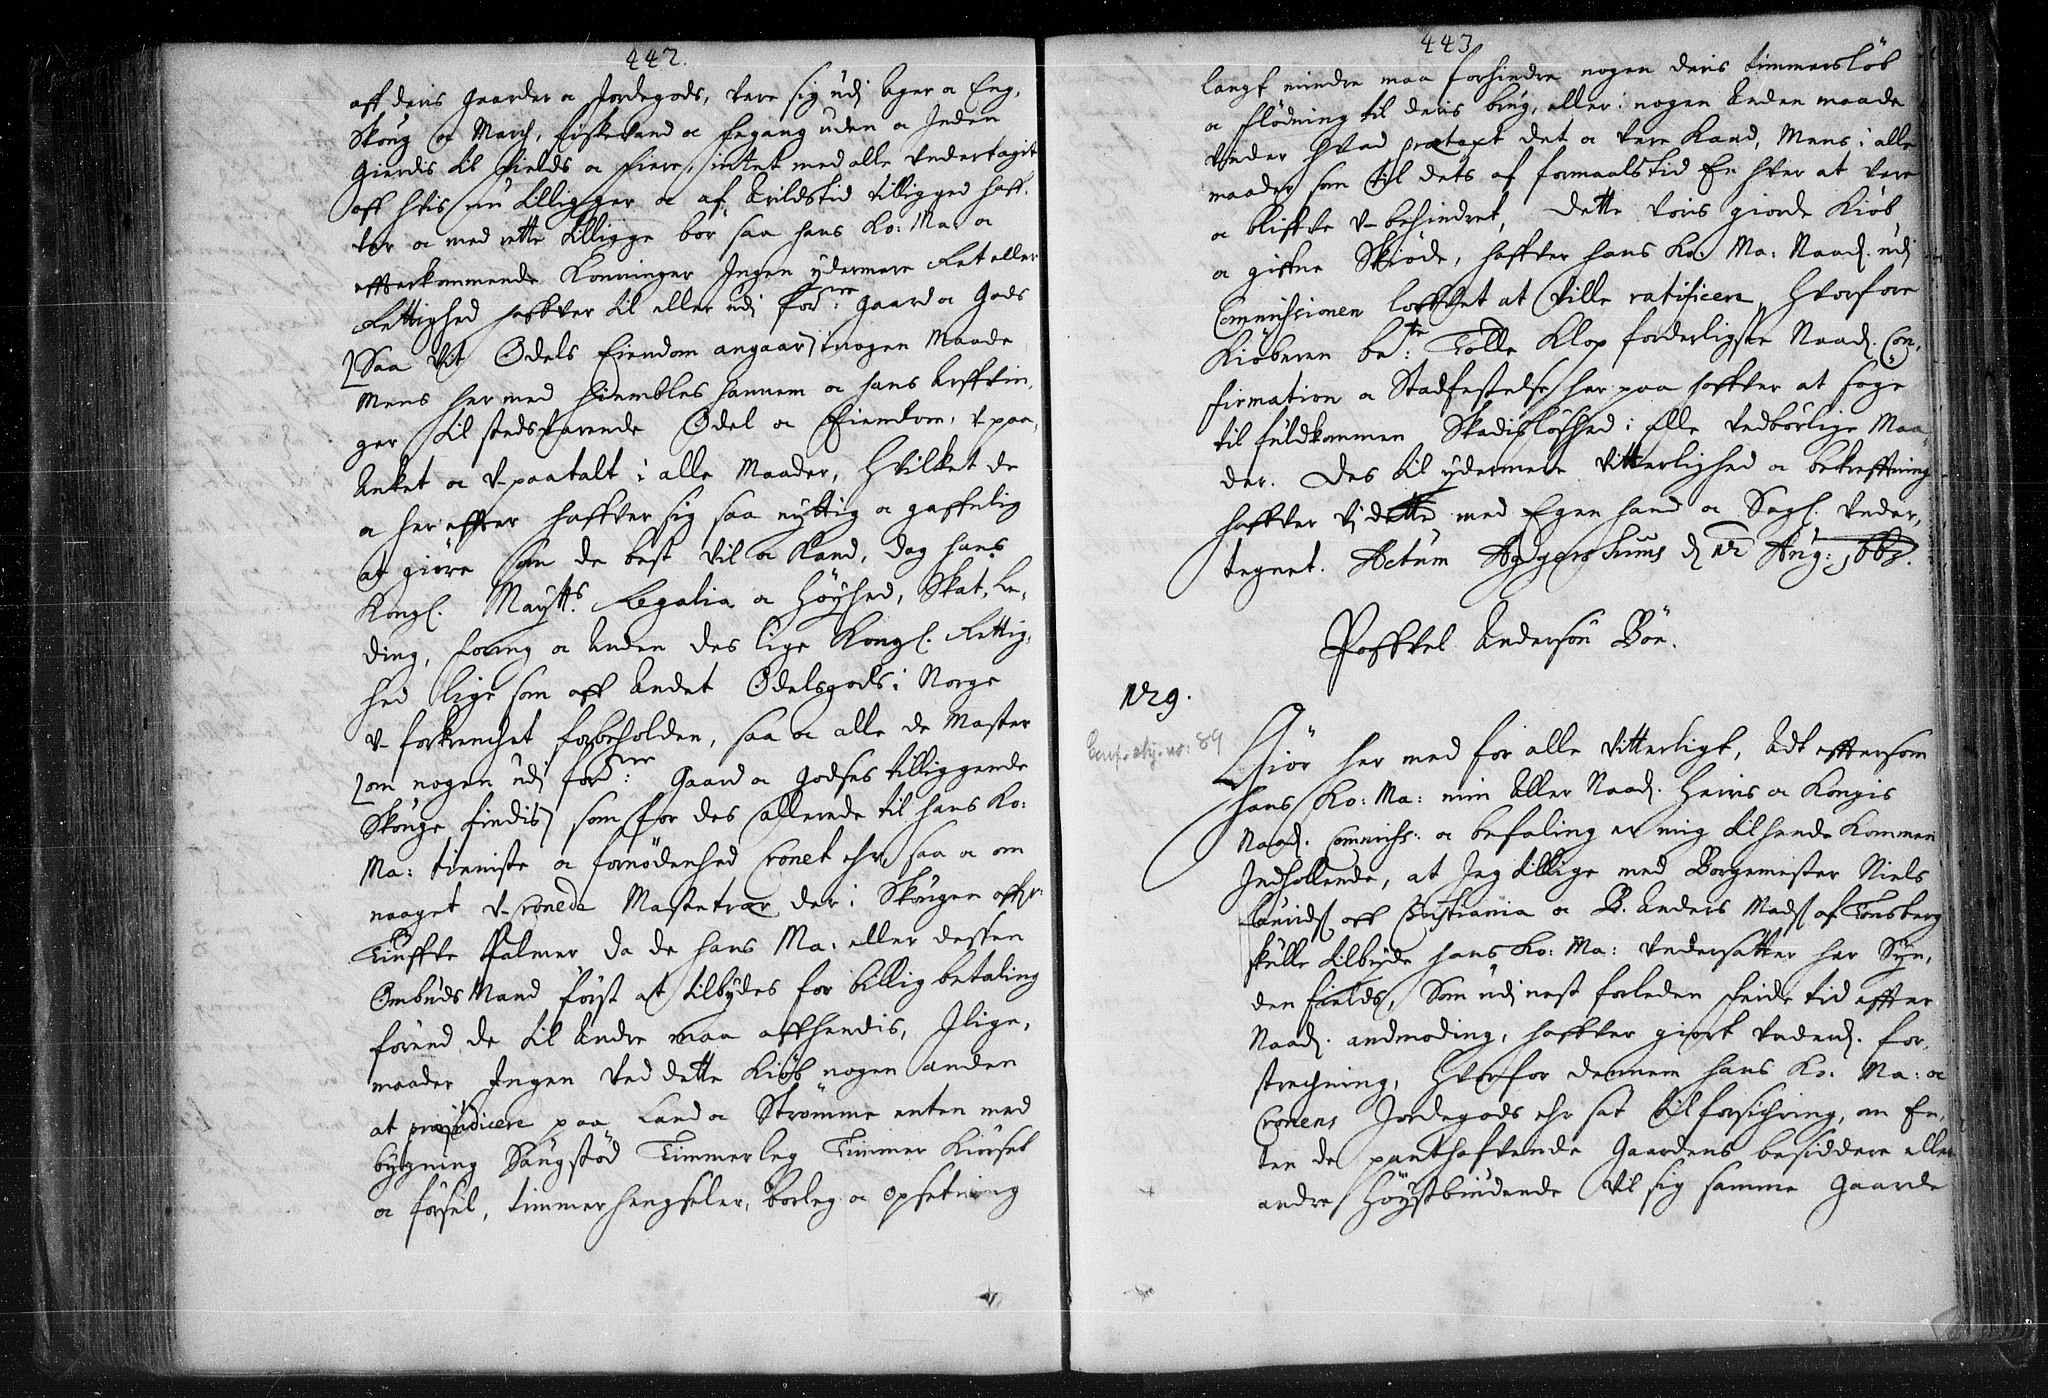 442.
aff deris Gaarder oc Jordegods, være sig udj Ager oc Eng,
Skoug oc March, fiskevand oc fægang uden oc Inden
Gierdis til fields oc fiere, intet med alle undertagit
aff hvis nu tilligger oc af Arildstid tilligged haff-
ver oc med rette tilligge bør saa hans Ko: Ma: oc
effterkommende Konninger Ingen ydermere Ret eller
Rettighed haffver til eller udj for:ne Gaard oc Gods
[Saa vit Odels Eiendom angaar] i nogen Maade
Mens her med hiembles hannem oc hans Arffvin-
ger til stedsvarende Odel oc Eiendom, u-paa-
Anket oc u-paatalt i alle Maader, Hvilket de
oc her effter haffver sig saa nyttig oc gaffnlig
at giøre som de best vil oc Kand, dog hans
Kongl. Maytts. Regalia oc Høyhed, Skat, Le-
ding, foring oc Anden des lige Kongl. Rettig-
hed lige som aff Andet Odelsgods i Norge
u-forkrenchet forbeholden, saa oc alle de Master
[om nogen udj for:ne Gaard oc Godses tilliggende
Skouge findis] som for des allerede til hans Ko:
Ma: tienniste oc fornødenhed Cronet ehr, saa oc om
naaget u-Cronede Mastetrær der i Skougen offr:
Tiuffve Palmer da de hans Ma: eller dessen
OmbudsMand først at tilbydes for billig betaling
førend de til Andre maa affhendis, Ilige-
maader Ingen ved dette Kiøb nogen anden
at præjudicere paa Land oc Strømme enten med
bygning Saugstød Timmerleg Timmer Kiørsel
oc førsel, timmerhengseler, Borleg oc opsetning
443.
langt mindre maa forhindre nogen deris timmersløb
oc flødning til deris brug, eller i nogen Anden maade
under hvad prætext det oc være Kand, Mens i alle
maader som til dets af formaalstid En hver at være
oc bliffve u-behindret, Dette voris giorde Kiøb
oc giffne Skiøde, haffver hans Ko: Ma: Naad. udj
Commissionen loffvet at ville ratificere, Hvorfore
Kiøberen be:te Tolle Klop forderligste Naad. Con-
firmation oc Stadfestelse her paa haffver at søge
til fuldkommen Skadisløshed i alle vedbørlige Maa-
der. Des til ydermere Vitterlighed oc bekrefftning
haffver Vj dette med Egen hand oc Segl. under-
tegnet. Actum Aggershuus d 12 Aug: 166.
Poffvel Andersøn Bøe.
129.
Conf. sky. no: 89
Giør her med for alle Vitterligt, Adt efftersom
hans Ko: Ma: min Aller Naad. Herris oc Kongis
Naad. Commiss: oc befaling er mig til hende Kommen
Indhollende, at Jeg tillige med Borgemester Niels
Lauridß aff Christiania oc B. Anders Madß af Tønsberg
skulle tilbyde hans Ko: Ma: Undersatter her Søn-
den fields, Som udj nest forleden feide tid effter
Naad. andmoding, haffver giort Underd. for-
strechning, Hvorfor dennem hans Ko: Ma: oc
Cronens Jordegods ehr sat til forsichring, om En-
ten de panthaffvende Gaardens besiddere eller
andre Høystbiudende vil sig samme Gaarde